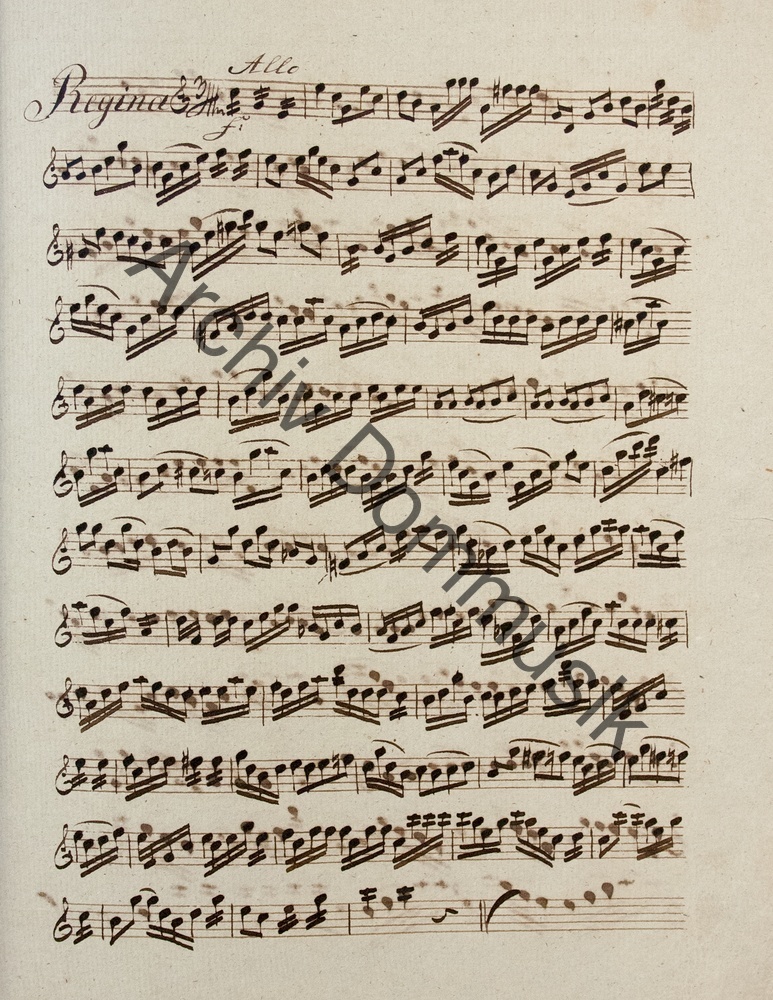 Allo
Regina
f:
Archiv Dommusik